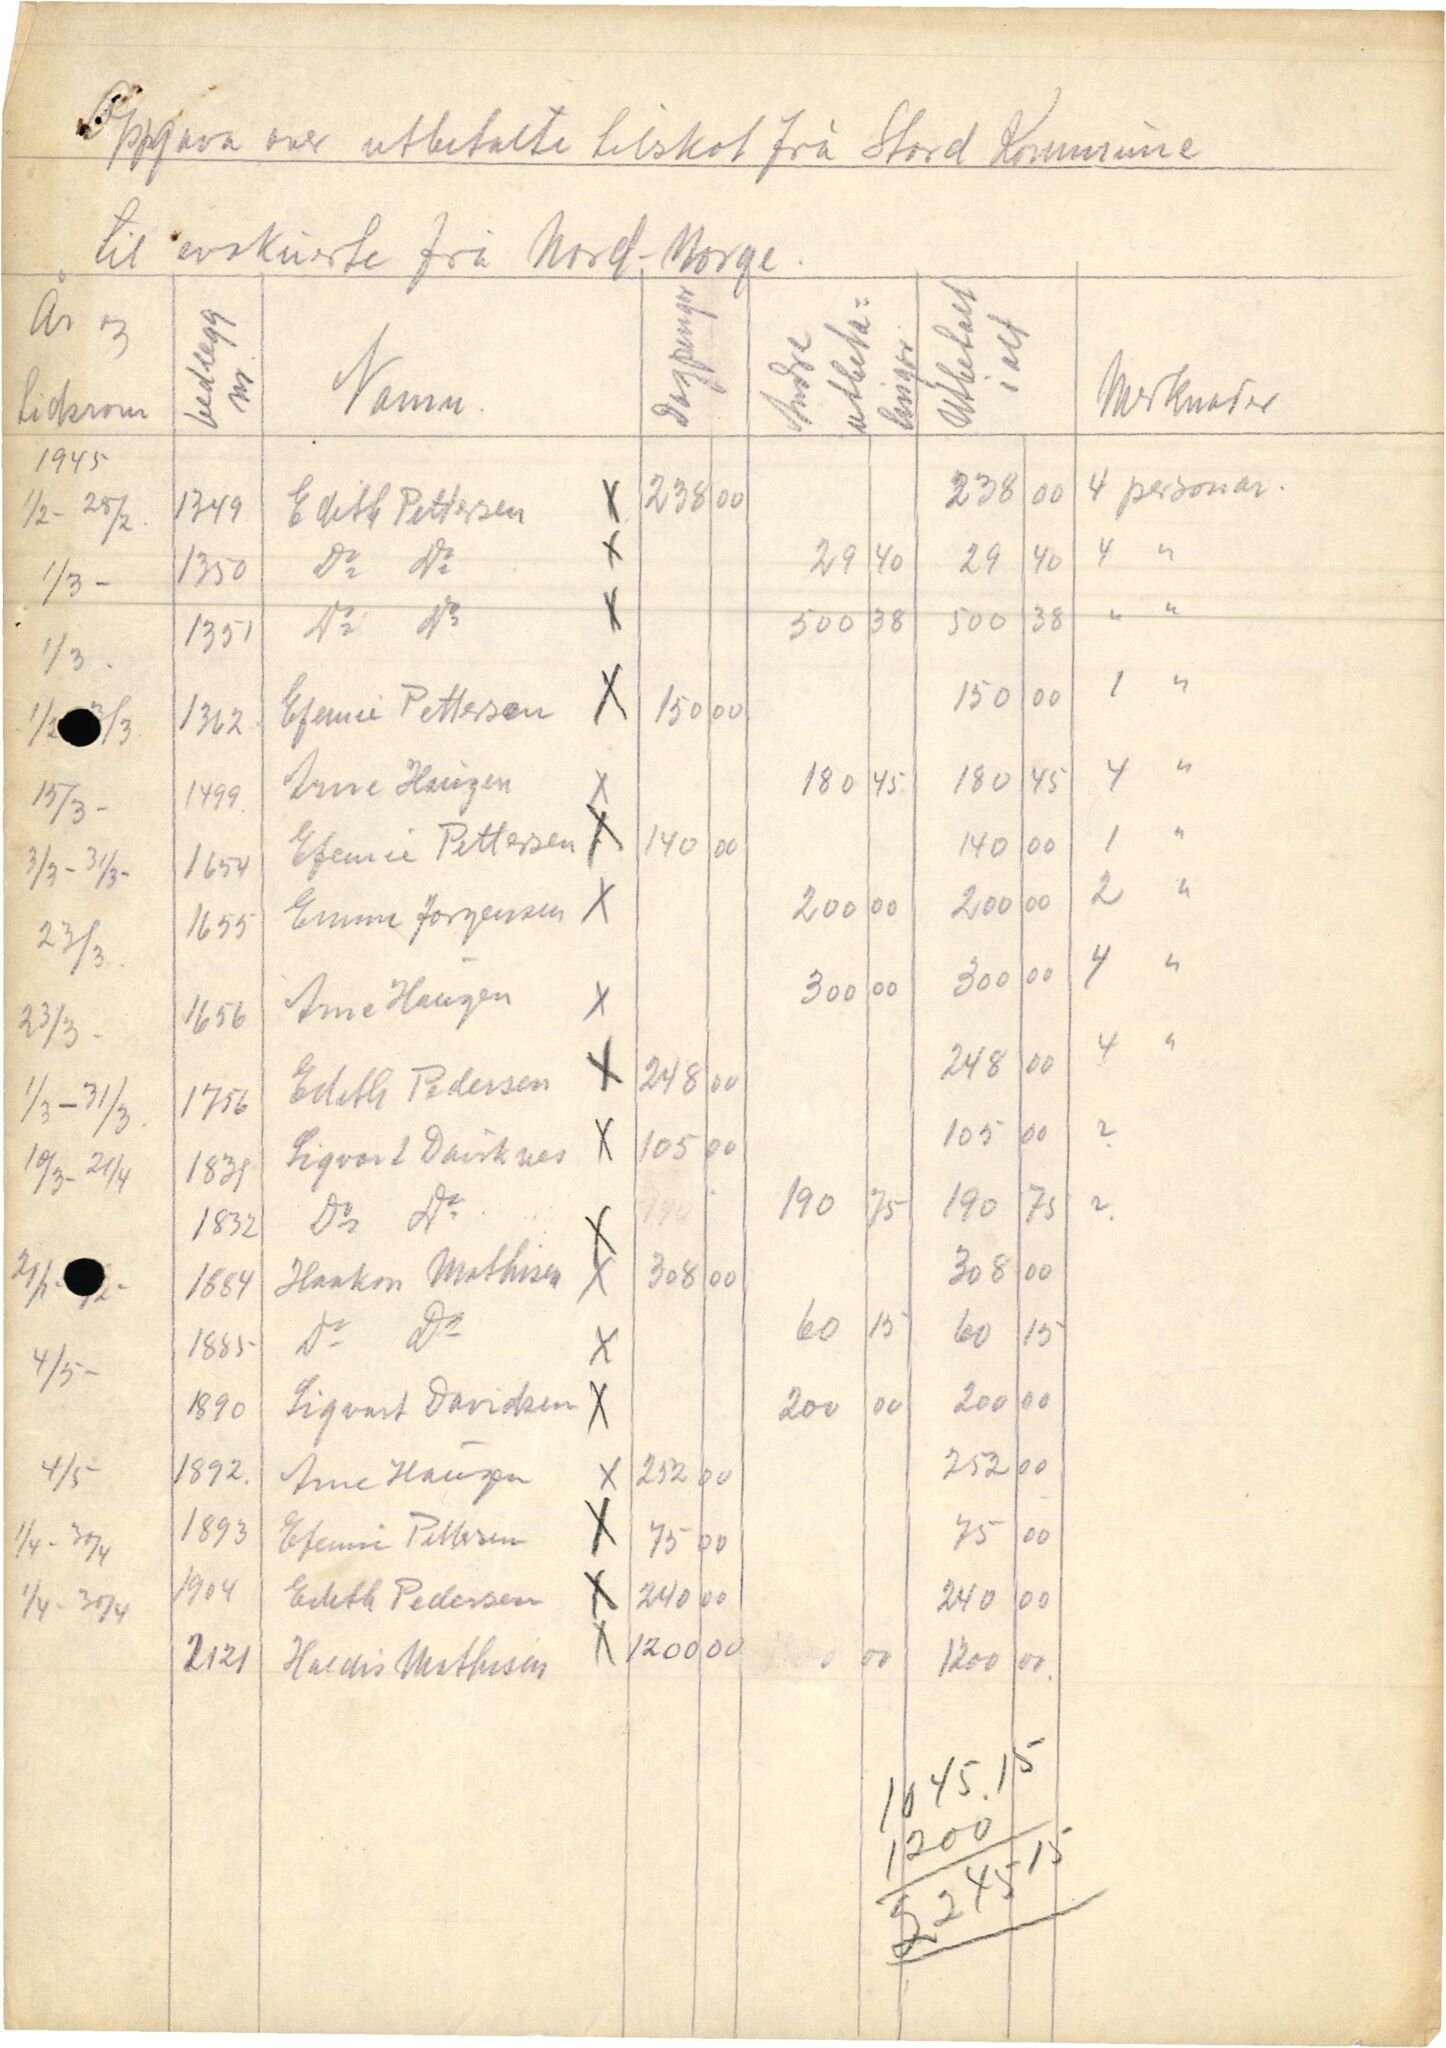 Oppgava over utbetalte tilskot frå Stord Kommune
til evakuerte frå Nord-Norge.
År og tidsrom bedlegg nr. Namn. Dagpenger Andre utbeta= linger Utbetalt i alt Merknader
1945
1/2 - 28/2. 1349 Edith Pettersen X 238 00 238 00 4 personar.
1/3 - 1350 Do Do X 29 40 29 40 4 "
1/3. 1351 Do Do X 500 38 500 38 " "
1362 Efemie Pettersen X 150 00 150 00 1 "
15/3 - 1499 Arne Haugen X 180 45 180 45 4 "
3/3 - 31/3 - 1654 Efemie Pettersen X 140 00 140 00 1 "
23/3. 1655 Emma Jørgensen X 200 00 200 00 2 "
23/3 - 1656 Arne Haugen X 300 00 300 00 4 "
1/3 - 31/3. 1756 Edith Pedersen X 248 00 248 00 4 "
10/3 - 21/4 1831 Sigvart X 105 00 105 00 2.
1832 Do Do X 190 75 190 75 2.
1884 Haakon Mathisen X 308 00 308 00
4/5 - 1885 Do Do X 60 15 60 15
1890 Sigvart Davidsen X 200 00 200 00
4/5 1892. Arne Haugen X 252 00 252 00
1/4 - 30/4 1893 Efemie Pettersen X 75 00 75 00
1/4 - 30/4 1904 Edith Pedersen X 240 00 240 00
2121 Haldis Mathisen X 1200 00 00 1200 00.
1045.15
1200
2245 15